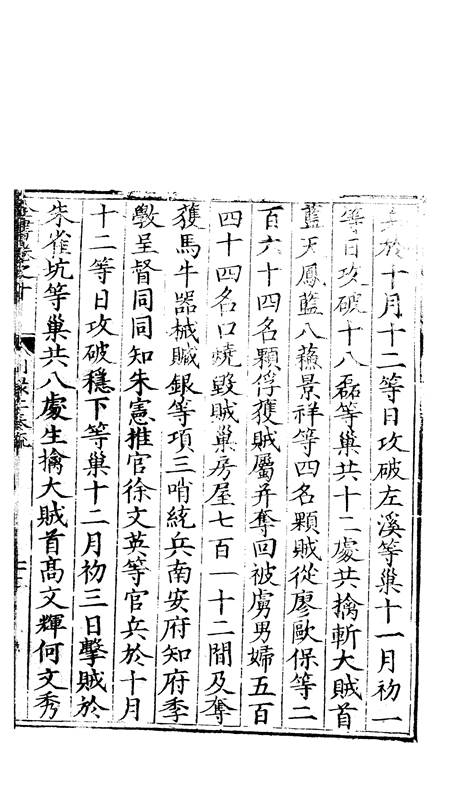 兵於十月十二等日攻破左溪等巢十一月初一
等日攻破十八磊等巢共十二處共擒斬大賊首
藍天鳳藍八蘇景祥等四名顆賊從廖歐保等二
百六十四名顆俘獲賊屬并奪回被虜男婦五百
四十四名口燒毀賊巢房屋七百一十二間及奪
獲馬牛器械贓銀等項三哨統兵南安府知府季
斆呈督同同知朱憲推官徐文英等官兵於十月
十二等日攻破穩下等巢十二月初三日擊賊於
朱雀坑等巢共八處生擒大賊首高文輝何文秀
全書卷之十